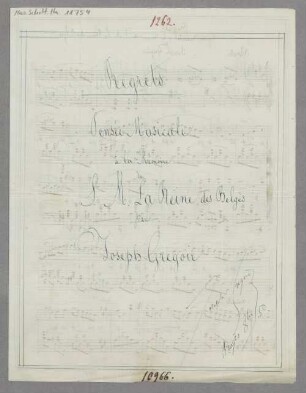 Mus. Schott. Ha 11754
1262.
Regrets
Pensée Musicale
à la Mémoire
S. M. La Reine des Belges
Par
Joseph Grégoir
18966.